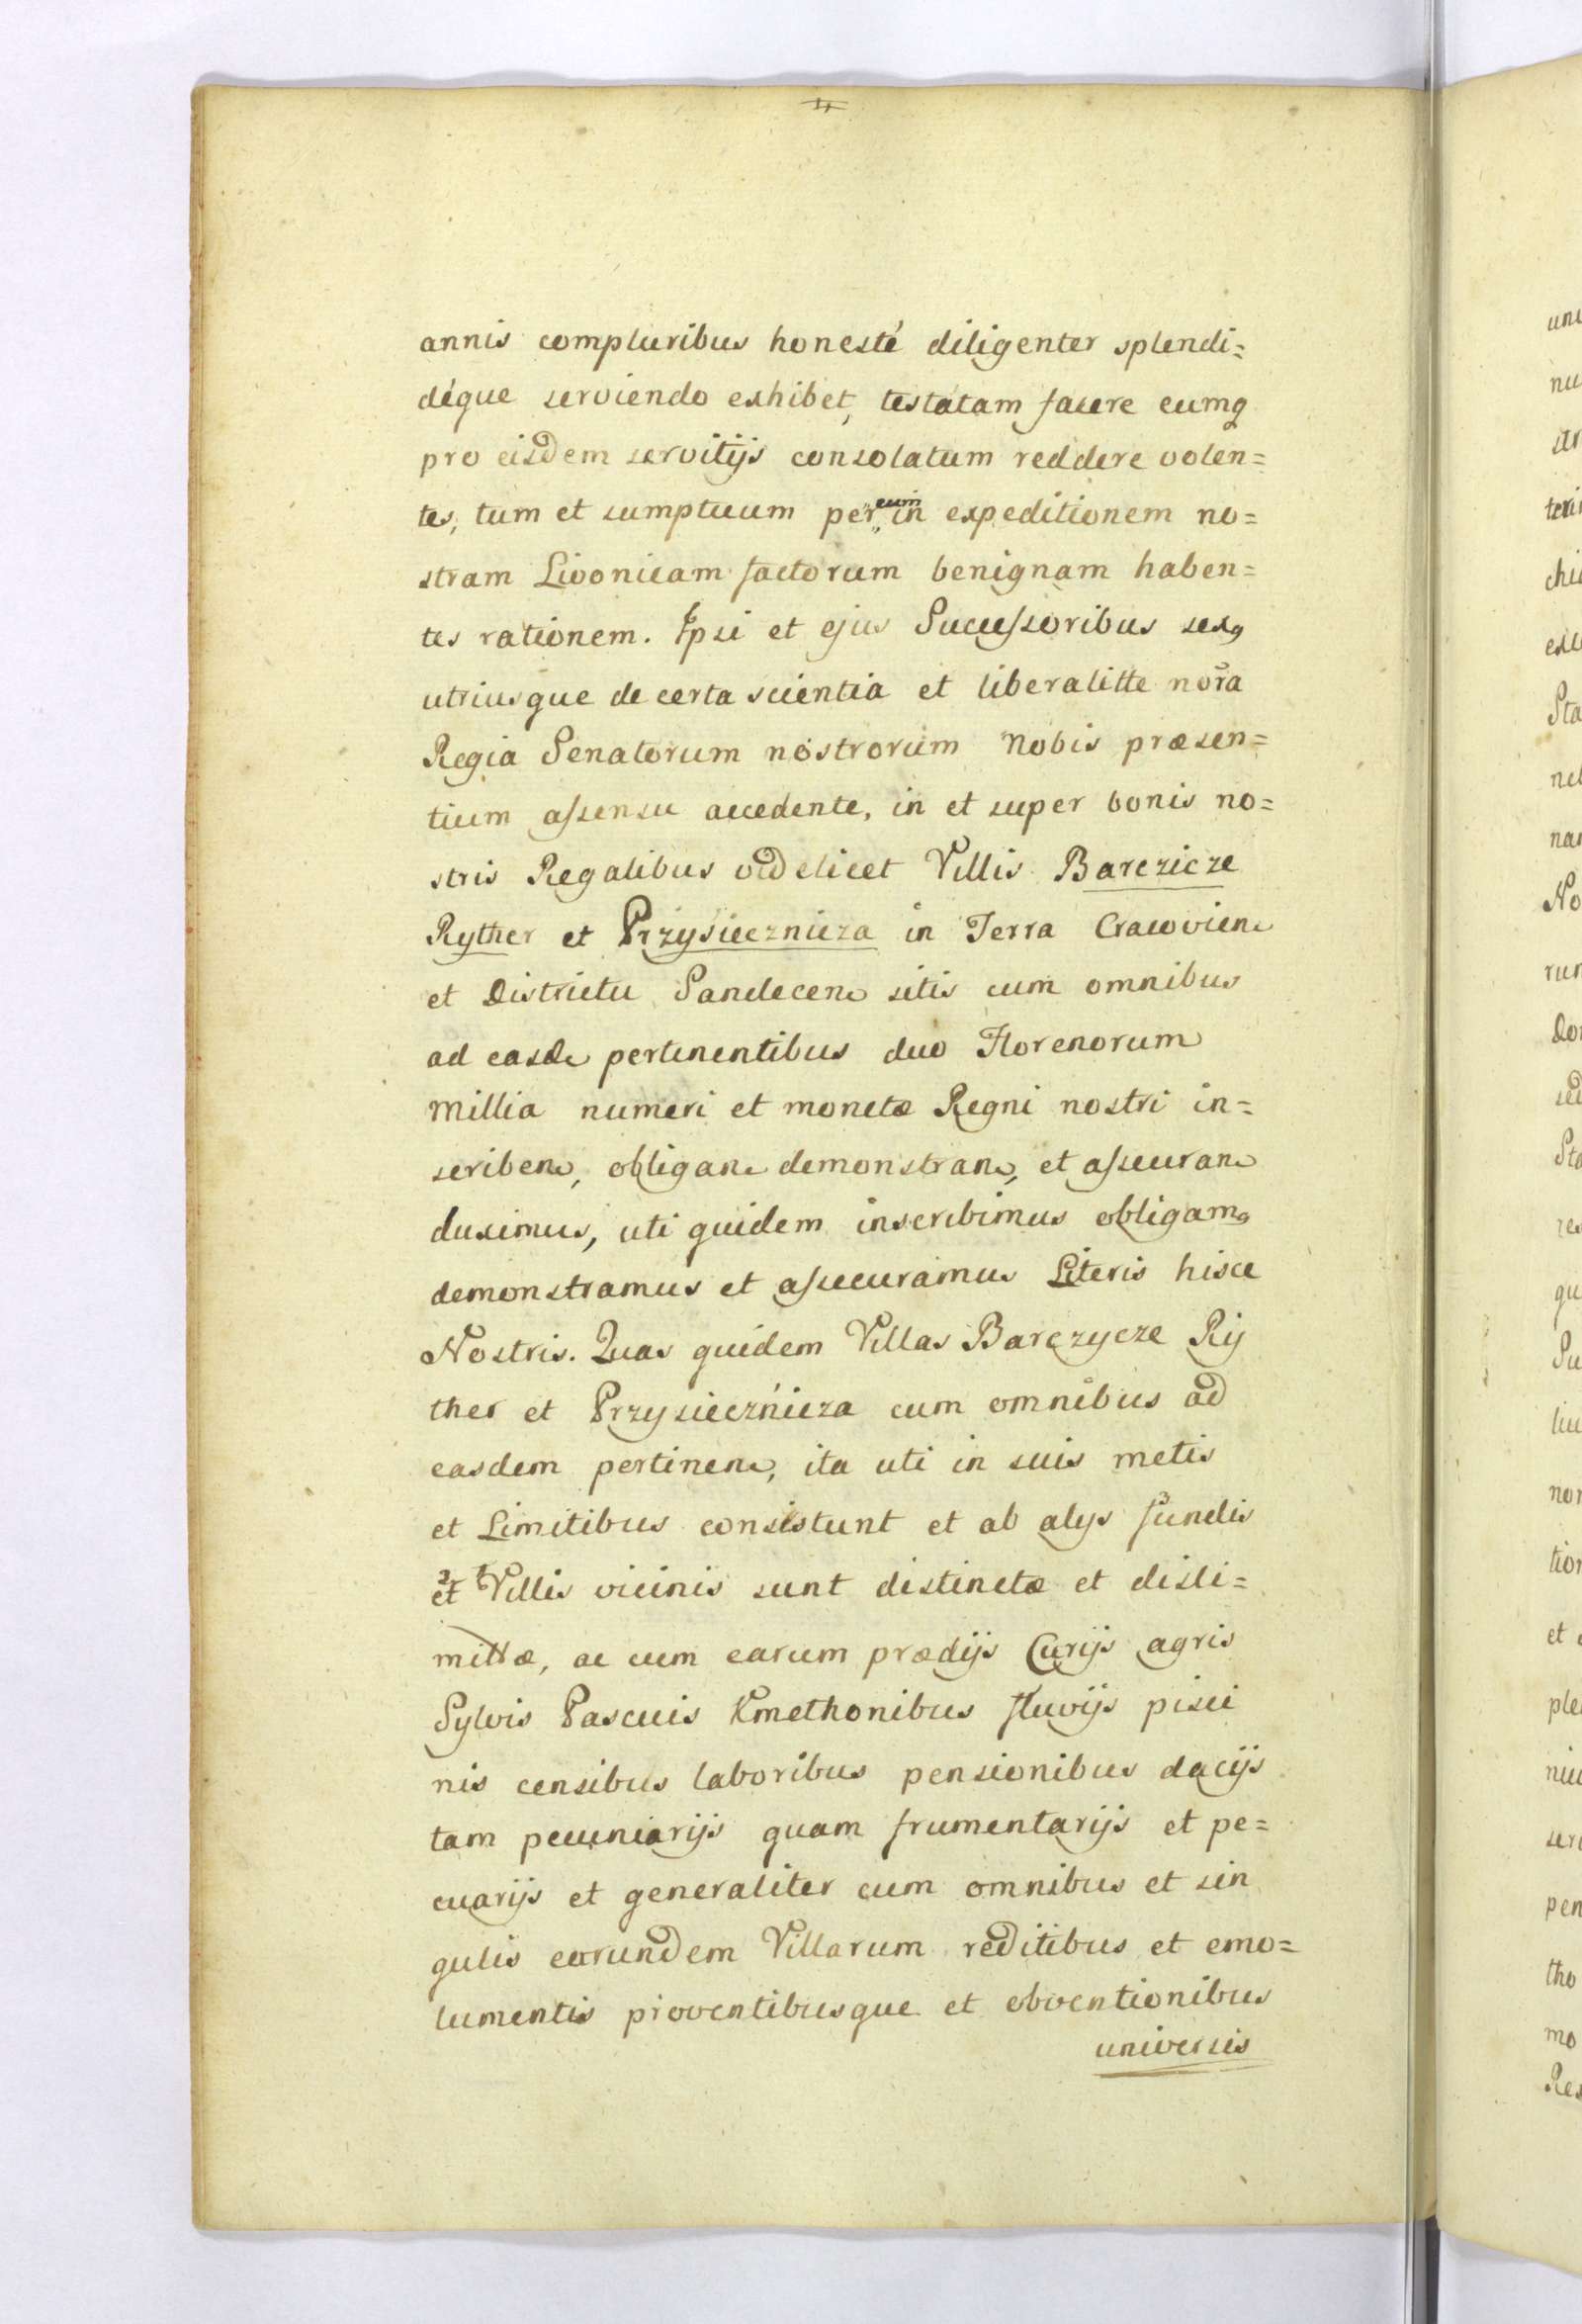 annis compluribus honesté diligenter splendi=
déque serviendo exhibet, testatam facere eumq
pro eisdem servitijs consolatum reddere volen=
tes, tum et sumptuum per eum in expeditionem no=
stram Livonicam factorum benignam haben=
tes rationem. Ipsi et ejus Sucessoribus sexq
utriusque de certa scientia et liberalitte nora
Regia Senatorum nostrorum Nobis præsen=
tium assensu accedente, in et super bonis no=
stris Regalibus videlicet Villis Barczicze
Ryther et Przysiecznicza in Terra Cracovien
et Districtu Sandecen sitis cum omnibus
ad easde pertinentibus duo Florenorum
Millia numeri et monetæ Regni nostri in=
scriben, obligan demonstran, et assecuran
duximus, uti quidem inscribimus obligam9
demonstramus et assecuramus Literis hisce
Nostris. Quas quidem Villas Barczycze Rij
ther et Przysieczńicza cum omnibus ad
easdem pertinen, ita uti in suis metis
et Limitibus consistunt et ab alys fundis
et Villis vicinis sunt distinctæ et disli=
mittæ, ac cum earum prædijs Curijs agris
Sylvis Pascuis Kmethonibus fluvijs pisci
nis censibus laboribus pensionibus dacijs
tam pecuniarijs quam frumentarijs et pe=
cuarijs et generaliter cum omnibus et sin
gulis earundem Villarum reditibus et emo=
lumentis proventibusque et obventionibus
universis